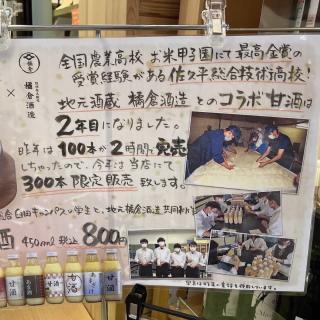 橘倉酒造
×
全国農業高校 お米甲子園にて最高金賞の
受賞経験がある佐久平総合技術高校!
地元酒蔵 橘倉酒造 とのコラボ甘酒は
2年目になりました。
昨年は100本が2時間で完売
しちゃったので、今年は当店にて
300本限定販売 致します。
臼田キャンパスの学生と、地元橘倉酒造 共同
酒 450ml 税込 800円
甘酒